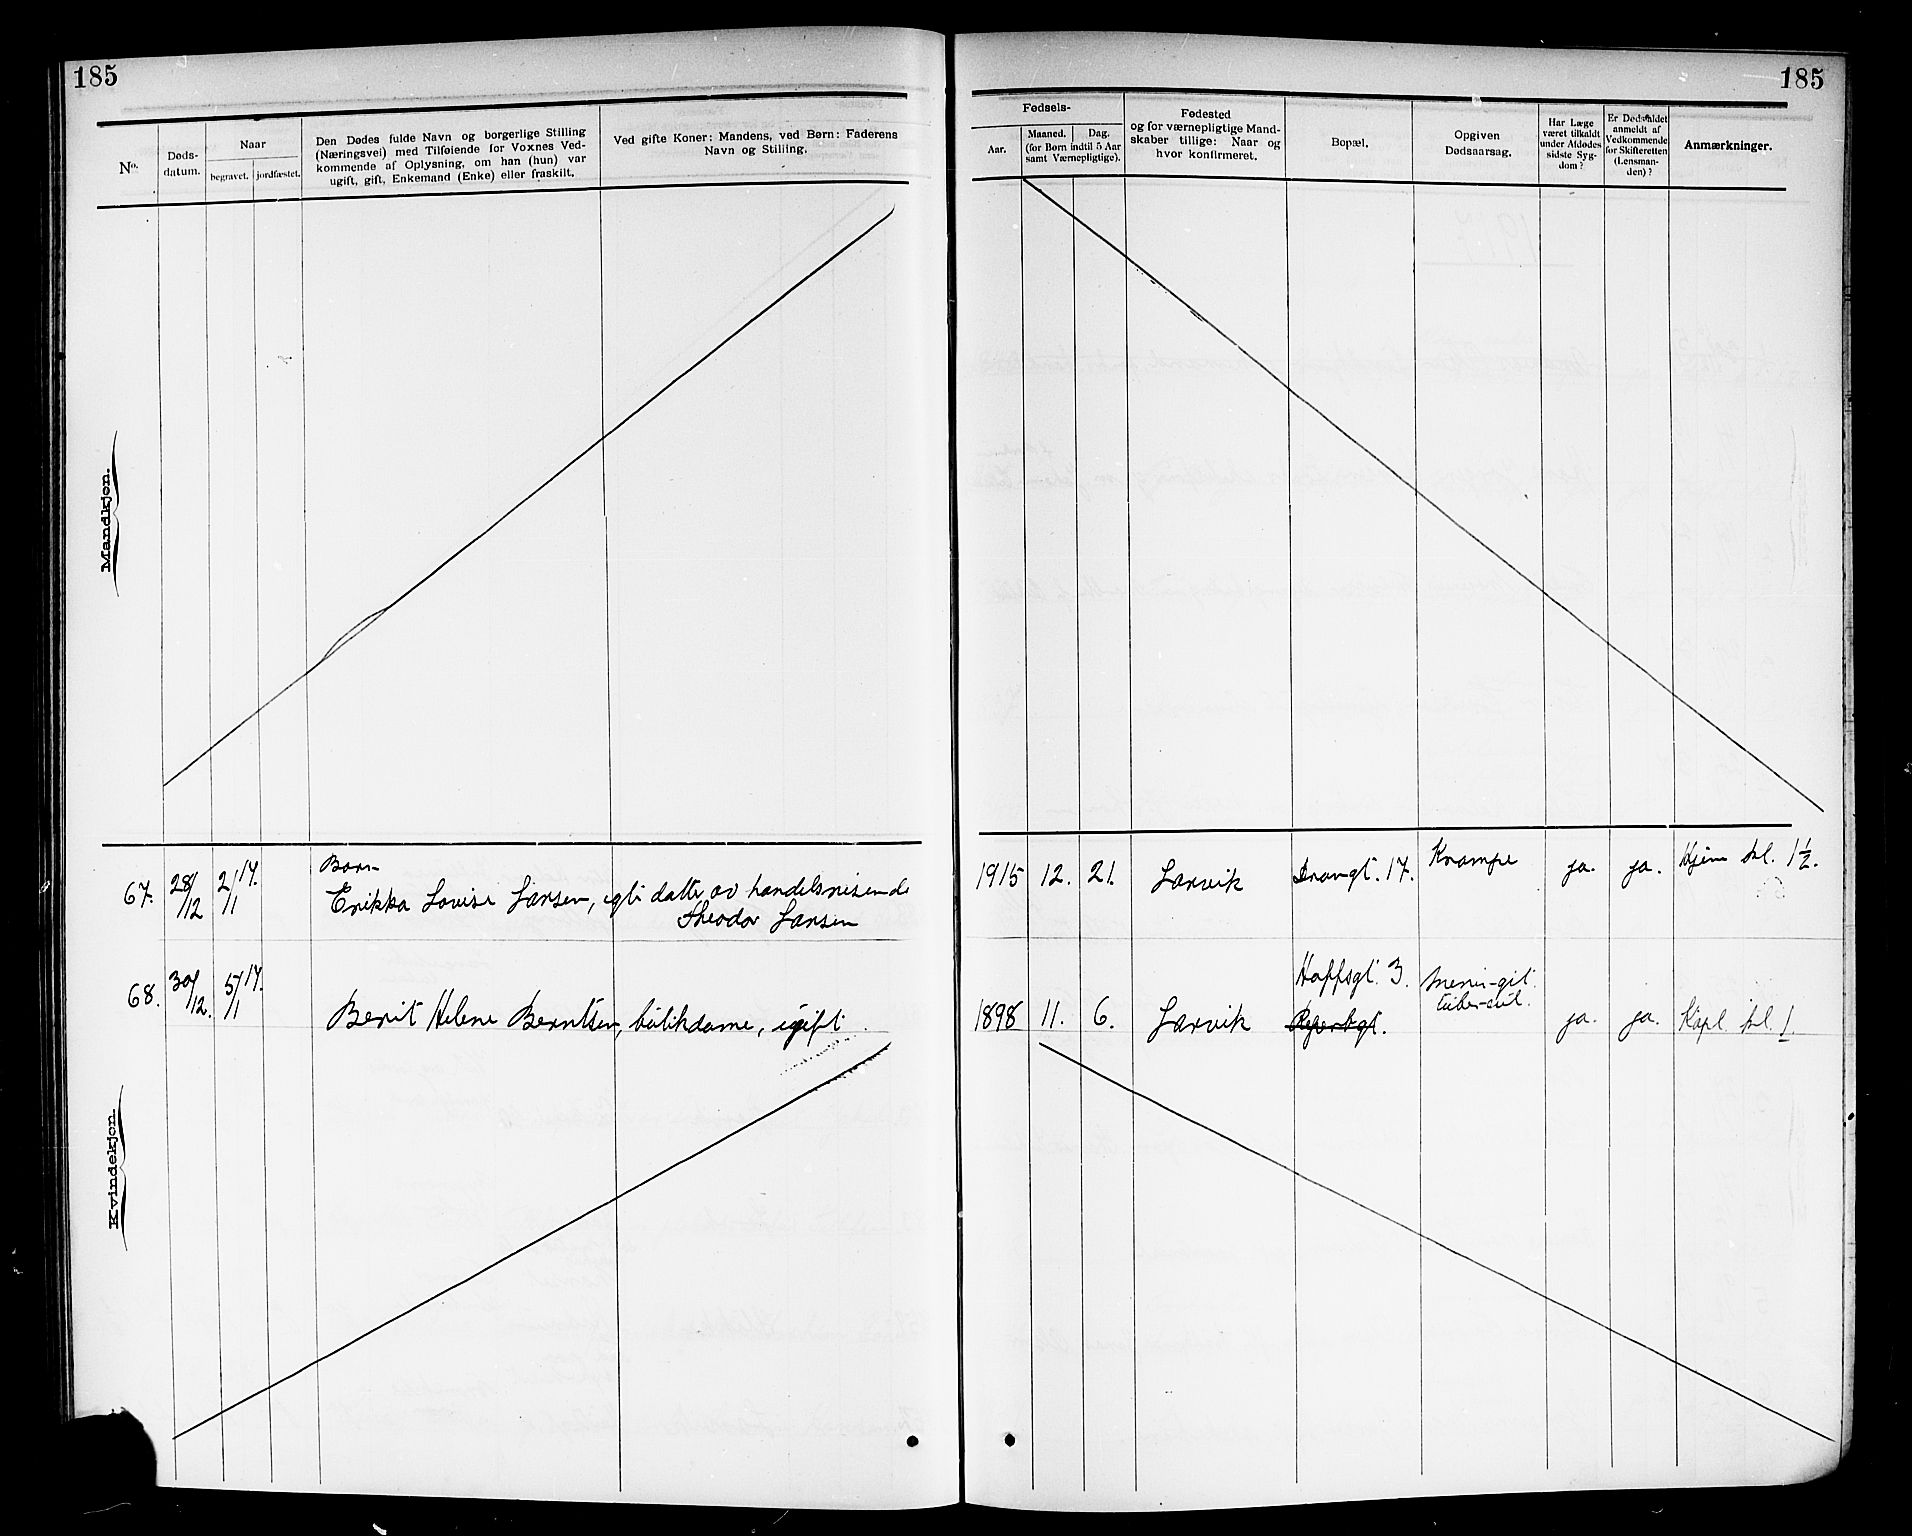 185
185
No.
Døds-
datum.
Naar
begravet.
jordfæstet.
Den Dødes fulde Navn og borgerlige Stilling
(Næringsvei) med Tilføiende for Voxnes Ved-
kommende af Oplysning, om han (hun) var
ugift, gift, Enkemand (Enke) eller fraskilt.
Ved gifte Koner: Mandens, ved Børn: Faderens
Navn og Stilling.
Fødsels-
Aar.
Maaned.
Dag.
(for Børn indtil 5 Aar
samt Værnepligtige).
Fødested
og for værnepligtige Mand-
skaber tillige: Naar og
hvor konfirmeret.
Bopæl.
Opgiven
Dødsaarsag.
Har Læge
været tilkaldt
under Afdødes
sidste Syg-
dom?
Er Dødsfaldet
anmeldt af
Vedkommende
for Skifteretten
(Lensman-
den)?
Anmærkninger.
Mandkjøn.
67. 28/12 2/1 17. Barn
Erikka Lovise Larsen, egte datter av handelsreisende
Theodor Larsen
1915 12. 21. Larvik 17. Krampe ja. ja. Hjem kl. 1½.
68. 30/12. 5/1 17.
Berit Helene Berntsen, butikdame, ugift
1898 11. 6. Larvik Hoffsgt. 3. Menin-git.
tuber-cul. ja. ja. Kapl. kl. 1.
Kvindekjøn.